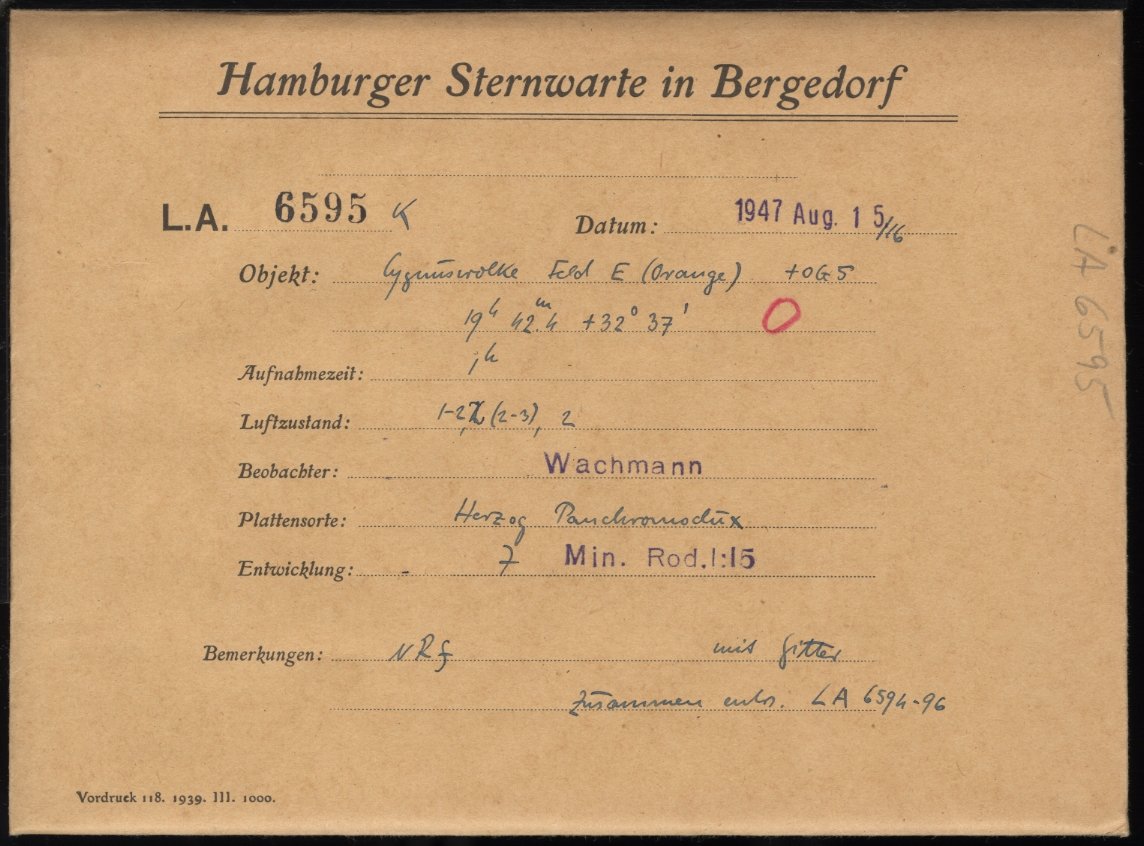 Hamburger Sternwarte in Bergedorf
L.A. 6595 K Datum: 1947 Aug. 15/16
Objekt: Cygnuswolke Feld E (Orange) +OG5
19h 42.m4 +32° 37'
Aufnahmezeit: 1h
Luftzustand: 1-2, 2 (2-3), 2
Beobachter: Wachmann
Plattensorte: Herzog Panchromodux
Entwicklung: 7 Min. Rod.1:15
Bemerkungen: NRf mit Gitter
Zusammen entw. LA 6594-96
Vordruck 118. 1939. III. 1000.
LA 6595